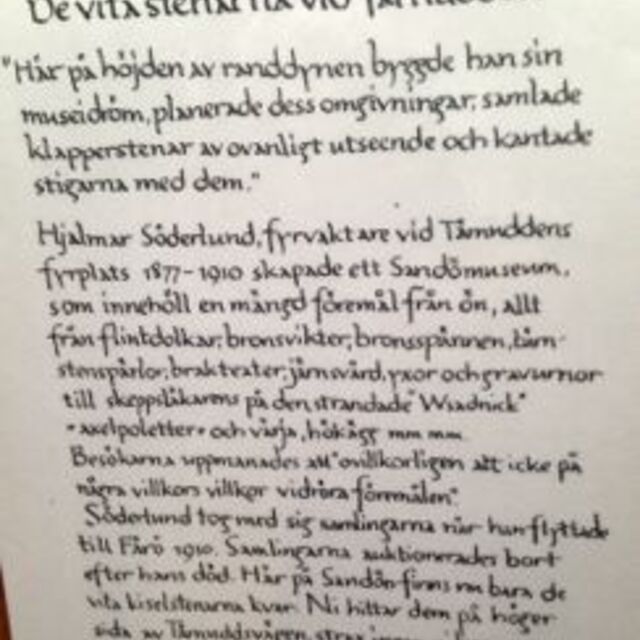 De vita stenarna vid
"Här på höjden av randdynen byggde han sin
museidröm, planerade dess omgivningar, samlade
klapperstenar av ovanligt utseende och kantade
stigarna med dem."
Hjalmar Söderlund, fyrvaktare vid Tärnuddens
fyrplats 1877-1910 skapade ett Sandömuseum,
som innehöll en mängd föremål från ön, allt
från flintdolkar, bronsvikter, bronsspännen, bärn-
stenspärlor, brakteater, järnsvärd, yxor och gravurnor
till skeppsläkarens på den strandade "Wsadnick"
"axelpoletter" och värja, hökägg mm mm.
Besökarna uppmanades att "ovillkorligen att icke på
några villkors villkor vidröra föremålen".
Söderlund tog med sig samlingarna när han flyttade
till Fårö 1910. Samlingarna auktionerades bort
efter hans död. Här på Sandön finns nu bara de
vita kiselstenarna kvar. Ni hittar dem på höger
sida av Tärnuddsvägen, strax